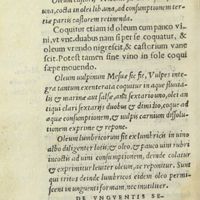 una, cocta in oleo lib. una, ad consumptionem ter
tiæ partis castorem retinenda.
Coquitur etiam id oleum cum pauco vi
ni, ut unc. duabus tam super se coquatur, &
oleum urendo nigrescit, & castorium vane
scit. Potest tamen fine vino in sole coqui
sæpe movendo.
Oleum vulpinum Mesue sic fit, Vulpes inte
gra tantum exenterata coquitur in aquæ dulcis
& marina aut salsæ, ana sextario uno, olei an
tiqui clari sextarijs duobus & dimidio, coque ad
aquæ consumptionem, & vulpis carnium dissolu
tionem exprime & repone.
Oleum lumbricorum fit ex lumbricis in vino
albo diligenter lotis, & oleo, ac pauco vini rubri
incoctis ad vini consumptionem, deinde colatur
& exprimitur leviter oleum, ac reponitur. Sunt
qui tritos deinde lumbricos eidem oleo permi
sceant in unguenti formam, nec inutiliter.
DE UNGUENTIS SE-